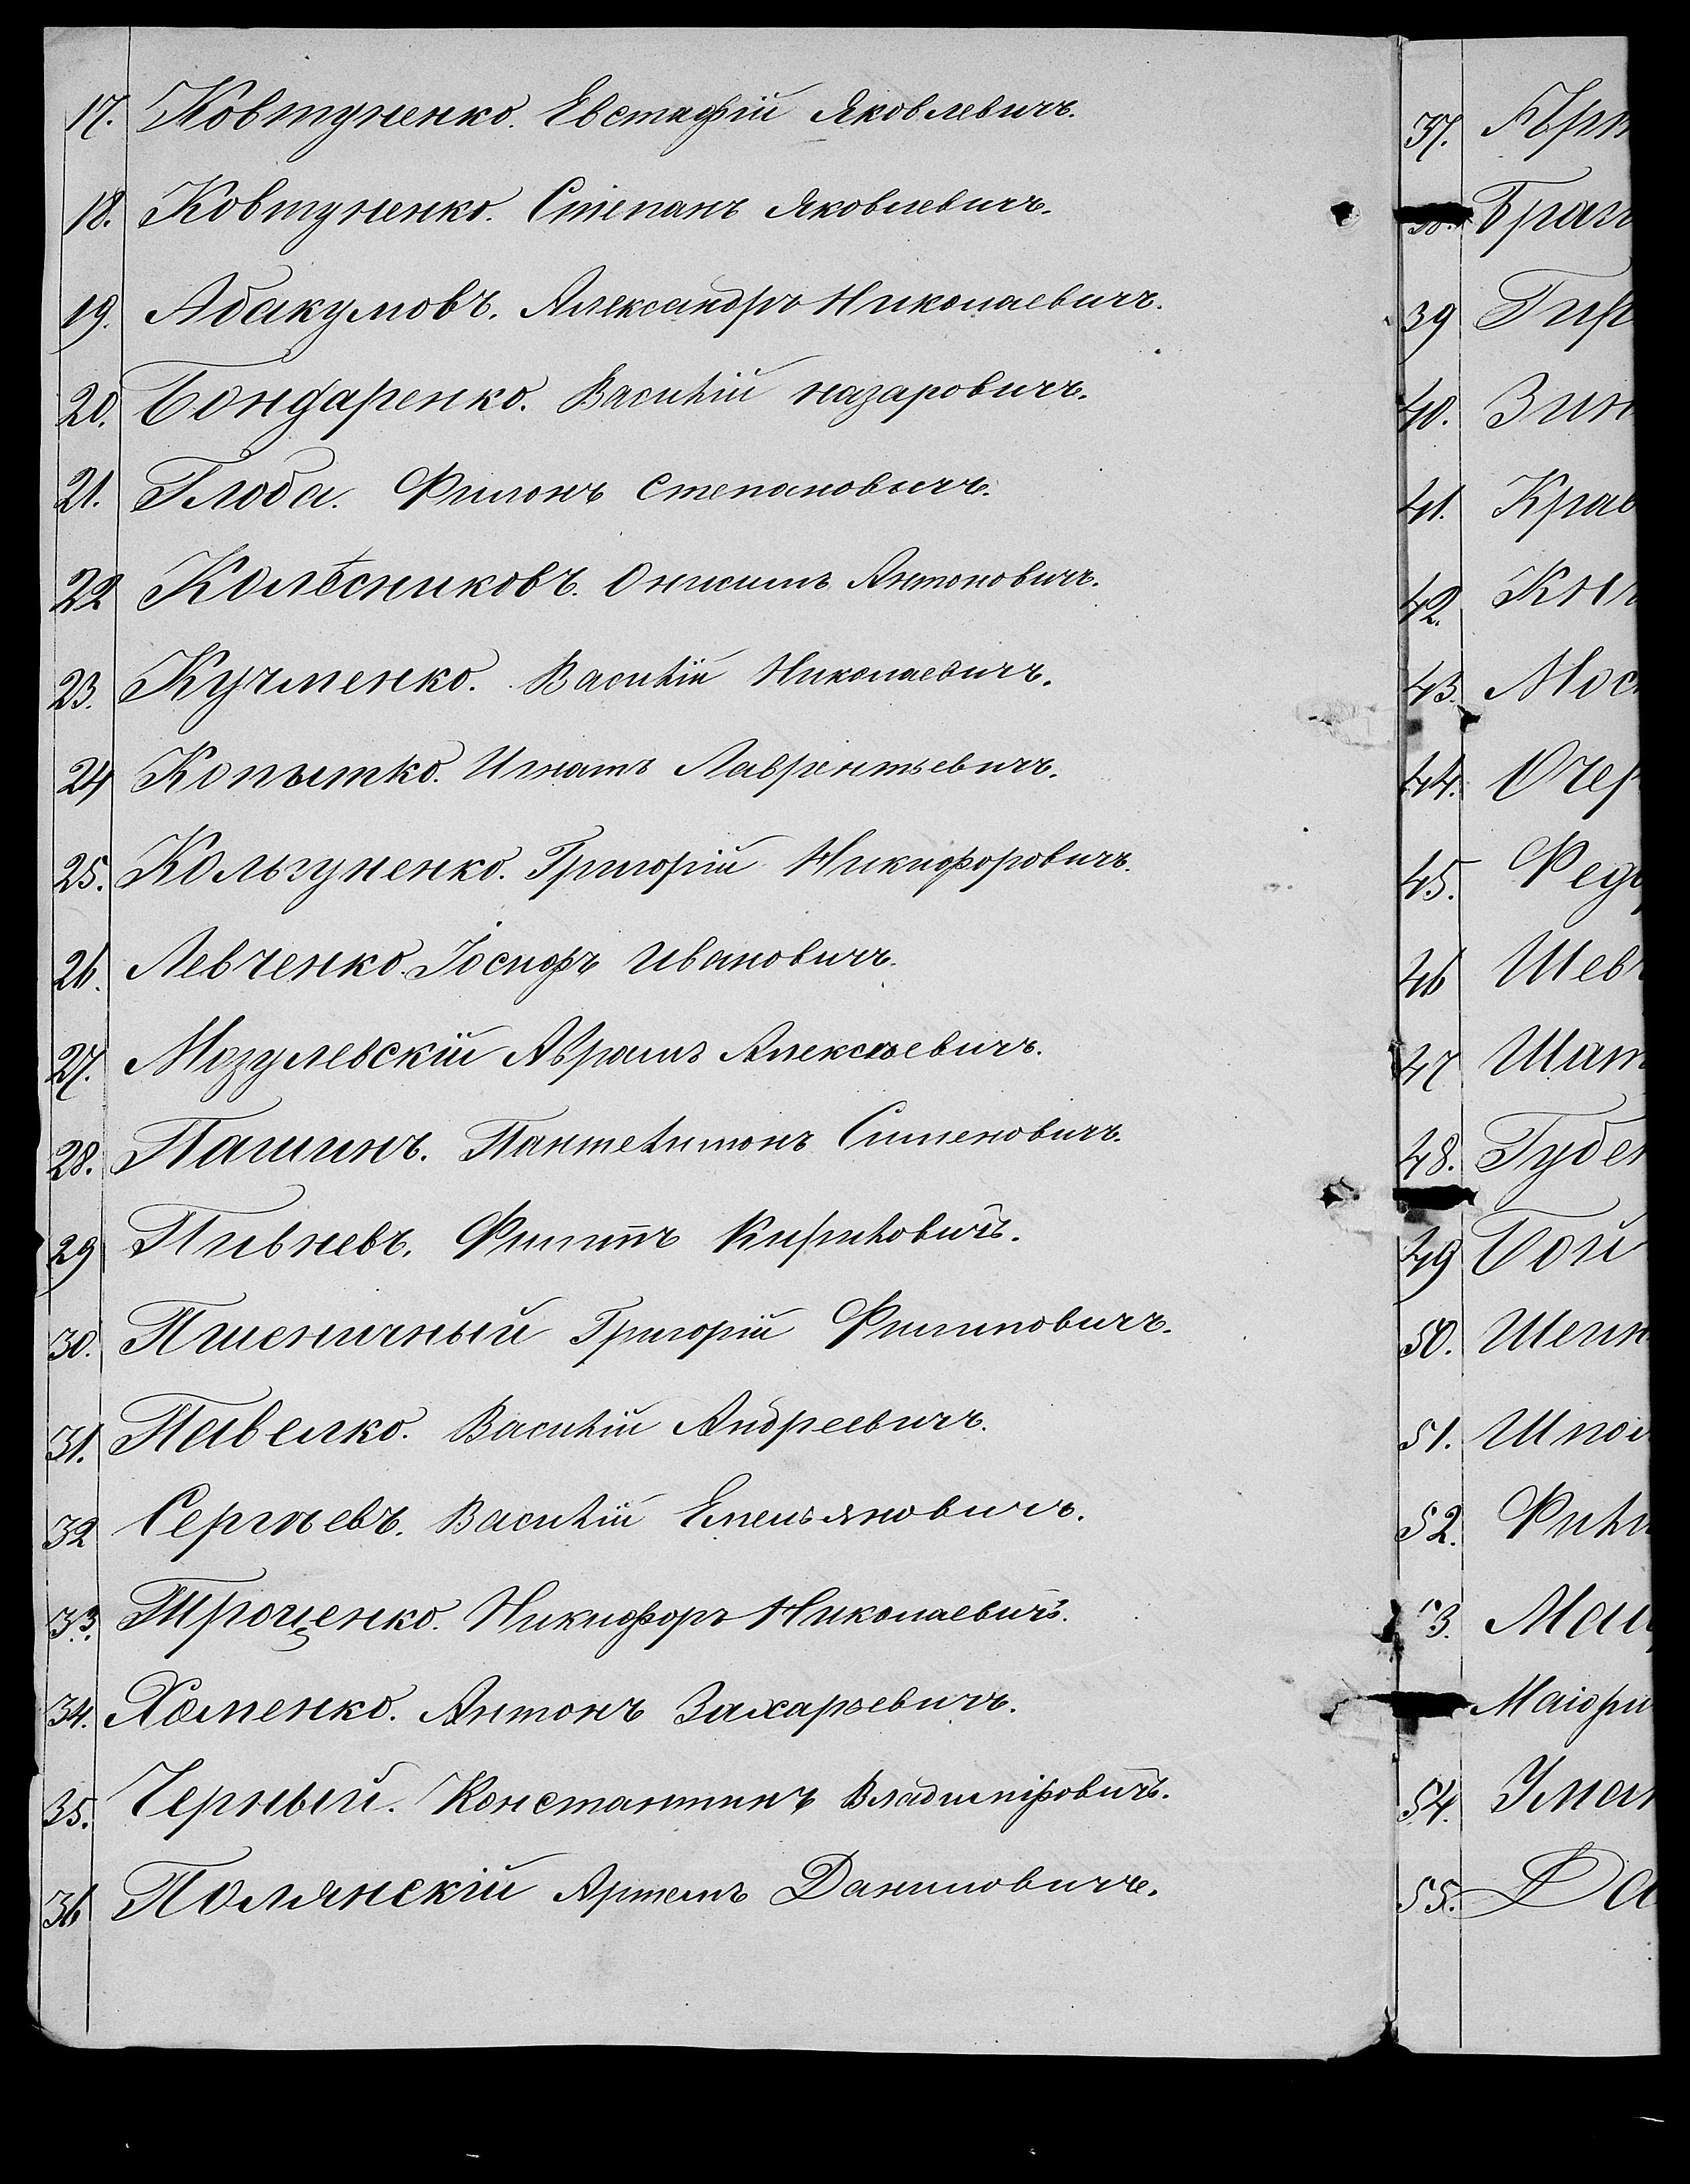 17. Ковтуненко. Евстафій Яковлевичъ.
18. Ковтуненко. Степанъ Яковлевичъ.
19. Абакумовъ. Александръ Николаевичъ.
20. Бондаренко. Василій Назаровичъ.
21. Глоба. Филонъ Степановичъ.
22 Колѣсниковъ. Онисимъ Антоновичъ.
23. Кучменко. Василій Николаевичъ.
24 Копытко. Игнатъ Лаврентьевичъ.
25. Кользуненко. Григорій Никифоровичъ.
26. Левченко. Іосифъ Ивановичъ.
27. Мозулевскій Аврамъ Алексѣевичъ.
28. Пашинъ. Пантелимонъ Сименовичъ.
29 Пивневъ. Филиппъ Кириловичъ.
30. Пшеничный Григорій Филиповичъ.
31. Павелко. Василій Андреевичъ.
32 Сергѣевъ. Василій Емельяновичъ.
33. Троценко. Никифоръ Николаевичъ.
34. Хоменко. Антонъ Захарьевичъ.
35. Черный. Константинъ Владиміровичъ.
36 Полянскій Артемъ Даниловичъ.
37.
Браг
39 Гир
40. Зин
41. Крав
42. Кни
43. Мос
44. Очер
45. Федо
46 Шевч
47 Шат
48. Губен
49 Бой
50. Шеин
51. Шпол
52. Фили
3.
Маіори
54. Уман
55. Да